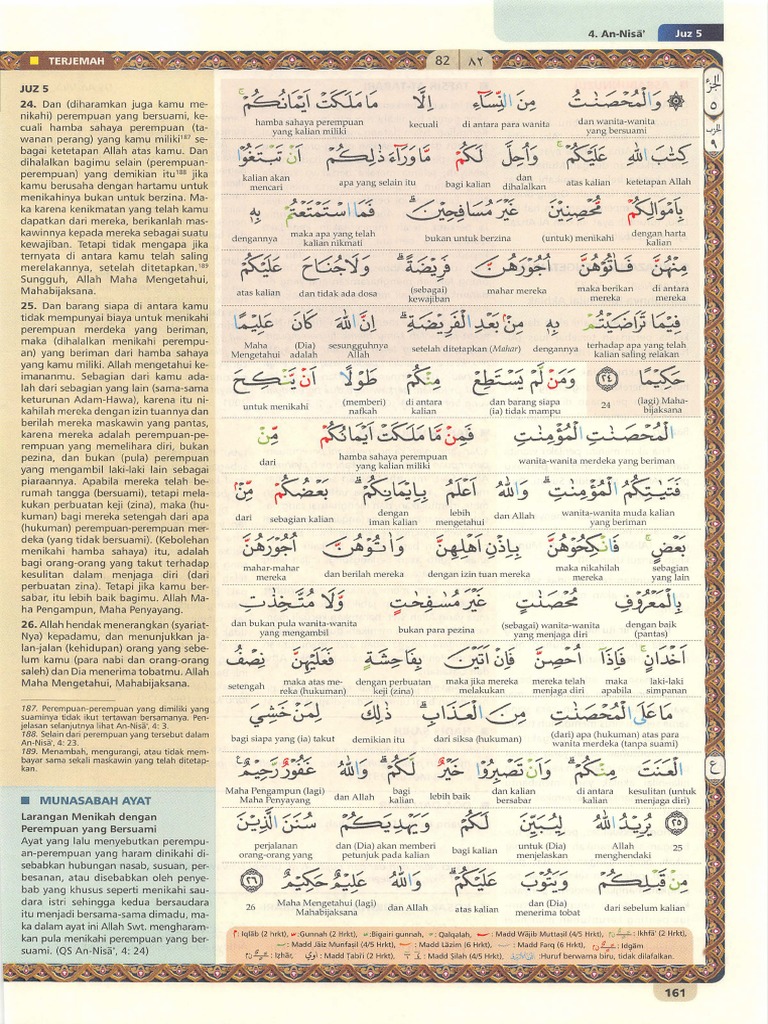 4. An-Nisā'
Juz 5
TERJEMAH
82
٨٢
JUZ 5
24. Dan (diharamkan juga kamu me-
nikahi) perempuan yang bersuami, ke-
cuali hamba sahaya perempuan (ta-
wanan perang) yang kamu miliki¹⁸⁷ se-
bagai ketetapan Allah atas kamu. Dan
dihalalkan bagimu selain (perempuan-
perempuan) yang demikian itu¹⁸⁸ jika
kamu berusaha dengan hartamu untuk
menikahinya bukan untuk berzina. Ma-
ka karena kenikmatan yang telah kamu
dapatkan dari mereka, berikanlah mas-
kawinnya kepada mereka sebagai suatu
kewajiban. Tetapi tidak mengapa jika
ternyata di antara kamu telah saling
merelakannya, setelah ditetapkan.¹⁸⁹
Sungguh, Allah Maha Mengetahui,
Mahabijaksana.
25. Dan barang siapa di antara kamu
tidak mempunyai biaya untuk menikahi
perempuan merdeka yang beriman,
maka (dihalalkan menikahi perempu-
an) yang beriman dari hamba sahaya
yang kamu miliki. Allah mengetahui ke-
imananmu. Sebagian dari kamu ada-
lah dari sebagian yang lain (sama-sama
keturunan Adam-Hawa), karena itu ni-
kahilah mereka dengan izin tuannya dan
berilah mereka maskawin yang pantas,
karena mereka adalah perempuan-pe-
rempuan yang memelihara diri, bukan
pezina, dan bukan (pula) perempuan
yang mengambil laki-laki lain sebagai
piaraannya. Apabila mereka telah be-
rumah tangga (bersuami), tetapi mela-
kukan perbuatan keji (zina), maka (hu-
kuman) bagi mereka setengah dari apa
(hukuman) perempuan-perempuan mer-
deka (yang tidak bersuami). (Kebolehan
menikahi hamba sahaya) itu, adalah
bagi orang-orang yang takut terhadap
kesulitan dalam menjaga diri (dari
perbuatan zina). Tetapi jika kamu ber-
sabar, itu lebih baik bagimu. Allah Ma-
ha Pengampun, Maha Penyayang.
26. Allah hendak menerangkan (syariat-
Nya) kepadamu, dan menunjukkan ja-
lan-jalan (kehidupan) orang yang sebe-
lum kamu (para nabi dan orang-orang
saleh) dan Dia menerima tobatmu. Allah
Maha Mengetahui, Mahabijaksana.
187. Perempuan-perempuan yang dimiliki yang
suaminya tidak ikut tertawan bersamanya. Pen-
jelasan selanjutnya lihat An-Nisā', 4: 3.
188. Selain dari perempuan yang tersebut dalam
An-Nisā', 4: 23.
189. Menambah, mengurangi, atau tidak mem-
bayar sama sekali maskawin yang telah ditetap-
kan.
MUNASABAH AYAT
Larangan Menikah dengan
Perempuan yang Bersuami
Ayat yang lalu menyebutkan perempu-
an-perempuan yang haram dinikahi di-
sebabkan hubungan nasab, susuan, per-
besanan, atau disebabkan oleh penye-
bab yang khusus seperti menikahi sau-
dara istri sehingga kedua bersaudara
itu menjadi bersama-sama dimadu, ma-
ka dalam ayat ini Allah Swt. mengharam-
kan pula menikahi perempuan yang ber-
suami. (QS An-Nisā', 4: 24)
وَالْمُحْصَنٰتُ مِنَ النِّسَاۤءِ اِلَّا مَا مَلَكَتْ اَيْمَانُكُمْ ۚ
dan wanita-wanita yang bersuami di antara para wanita kecuali hamba sahaya perempuan yang kalian miliki
كِتٰبَ اللّٰهِ عَلَيْكُمْ ۚ وَاُحِلَّ لَكُمْ مَّا وَرَاۤءَ ذٰلِكُمْ اَنْ تَبْتَغُوْا
ketetapan Allah atas kalian dan dihalalkan bagi kalian apa yang selain itu kalian akan mencari
بِاَمْوَالِكُمْ مُّحْصِنِيْنَ غَيْرَ مُسَافِحِيْنَ ۗ فَمَا اسْتَمْتَعْتُمْ بِهٖ
dengan harta kalian (untuk) menikahi bukan untuk berzina maka apa yang telah kalian nikmati dengannya
مِنْهُنَّ فَاٰتُوْهُنَّ اُجُوْرَهُنَّ فَرِيْضَةً ۗ وَلَا جُنَاحَ عَلَيْكُمْ
di antara mereka maka berikan mereka mahar mereka (sebagai) kewajiban dan tidak ada dosa atas kalian
فِيْمَا تَرَاضَيْتُمْ بِهٖ مِنْۢ بَعْدِ الْفَرِيْضَةِ ۗ اِنَّ اللّٰهَ كَانَ عَلِيْمًا
terhadap apa yang telah kalian saling relakan dengannya setelah ditetapkan (Mahar) sesungguhnya Allah (Dia) adalah Maha Mengetahui
حَكِيْمًا ٢٤ وَمَنْ لَّمْ يَسْتَطِعْ مِنْكُمْ طَوْلًا اَنْ يَّنْكِحَ
(lagi) Maha-bijaksana 24 dan barang siapa (ia) tidak mampu di antara kalian (memberi) nafkah untuk menikahi
الْمُحْصَنٰتِ الْمُؤْمِنٰتِ فَمِنْ مَّا مَلَكَتْ اَيْمَانُكُمْ مِّنْ
wanita-wanita merdeka yang beriman hamba sahaya perempuan yang kalian miliki dari
فَتَيٰتِكُمُ الْمُؤْمِنٰتِ ۗ وَاللّٰهُ اَعْلَمُ بِاِيْمَانِكُمْ ۗ بَعْضُكُمْ مِّنْۢ
wanita-wanita muda kalian yang beriman dan Allah lebih mengetahui dengan iman kalian sebagian kalian dari
بَعْضٍ ۚ فَانْكِحُوْهُنَّ بِاِذْنِ اَهْلِهِنَّ وَاٰتُوْهُنَّ اُجُوْرَهُنَّ
sebagian yang lain maka nikahilah mereka dengan izin tuan mereka dan berilah mereka mahar-mahar mereka
بِالْمَعْرُوْفِ مُحْصَنٰتٍ غَيْرَ مُسٰفِحٰتٍ وَّلَا مُتَّخِذٰتِ
dengan baik (pantas) (sebagai) wanita-wanita yang menjaga diri bukan para pezina dan bukan pula wanita-wanita yang mengambil
اَخْدَانٍ ۚ فَاِذَآ اُحْصِنَّ فَاِنْ اَتَيْنَ بِفَاحِشَةٍ فَعَلَيْهِنَّ نِصْفُ
laki-laki simpanan maka apabila mereka telah menjaga diri maka jika mereka melakukan dengan perbuatan keji (zina) maka atas me-reka (hukuman) setengah
مَا عَلَى الْمُحْصَنٰتِ مِنَ الْعَذَابِ ۗ ذٰلِكَ لِمَنْ خَشِيَ
(dari) apa (hukuman) atas para wanita merdeka (tanpa suami) dari siksa (hukuman) demikian itu bagi siapa yang (ia) takut
الْعَنَتَ مِنْكُمْ ۗ وَاَنْ تَصْبِرُوْا خَيْرٌ لَّكُمْ ۗ وَاللّٰهُ غَفُوْرٌ رَّحِيْمٌ
kesulitan (untuk menjaga diri) di antara kalian dan kalian bersabar lebih baik bagi kalian dan Allah Maha Pengampun (lagi) Maha Penyayang
٢٥ يُرِيْدُ اللّٰهُ لِيُبَيِّنَ لَكُمْ وَيَهْدِيَكُمْ سُنَنَ الَّذِيْنَ
25 Allah menghendaki untuk (Dia) menjelaskan bagi kalian dan (Dia) akan memberi petunjuk pada kalian perjalanan orang-orang yang
مِنْ قَبْلِكُمْ وَيَتُوْبَ عَلَيْكُمْ ۗ وَاللّٰهُ عَلِيْمٌ حَكِيْمٌ ٢٦
dari sebelum kalian dan (Dia) menerima tobat atas kalian dan Allah Maha Mengetahui (lagi) Mahabijaksana 26
: Iqlāb (2 hrkt), : Gunnah (2 Hrkt), : Bigairi gunnah, : Qalqalah, : Madd Wājib Muttaṣil (4/5 Hrkt), : Ikhfā' (2 Hrkt),
: Madd Jāiz Munfaṣil (4/5 Hrkt), : Madd Lāzim (6 Hrkt), : Madd Farq (6 Hrkt), : Idgām
: Iẓhār, : Madd Ṭabī'i (2 Hrkt), : Madd Ṣilah (4/5 Hrkt), : Huruf berwarna biru, tidak dilafalkan.
الجزء
٥
الحزب
٩
ع
161